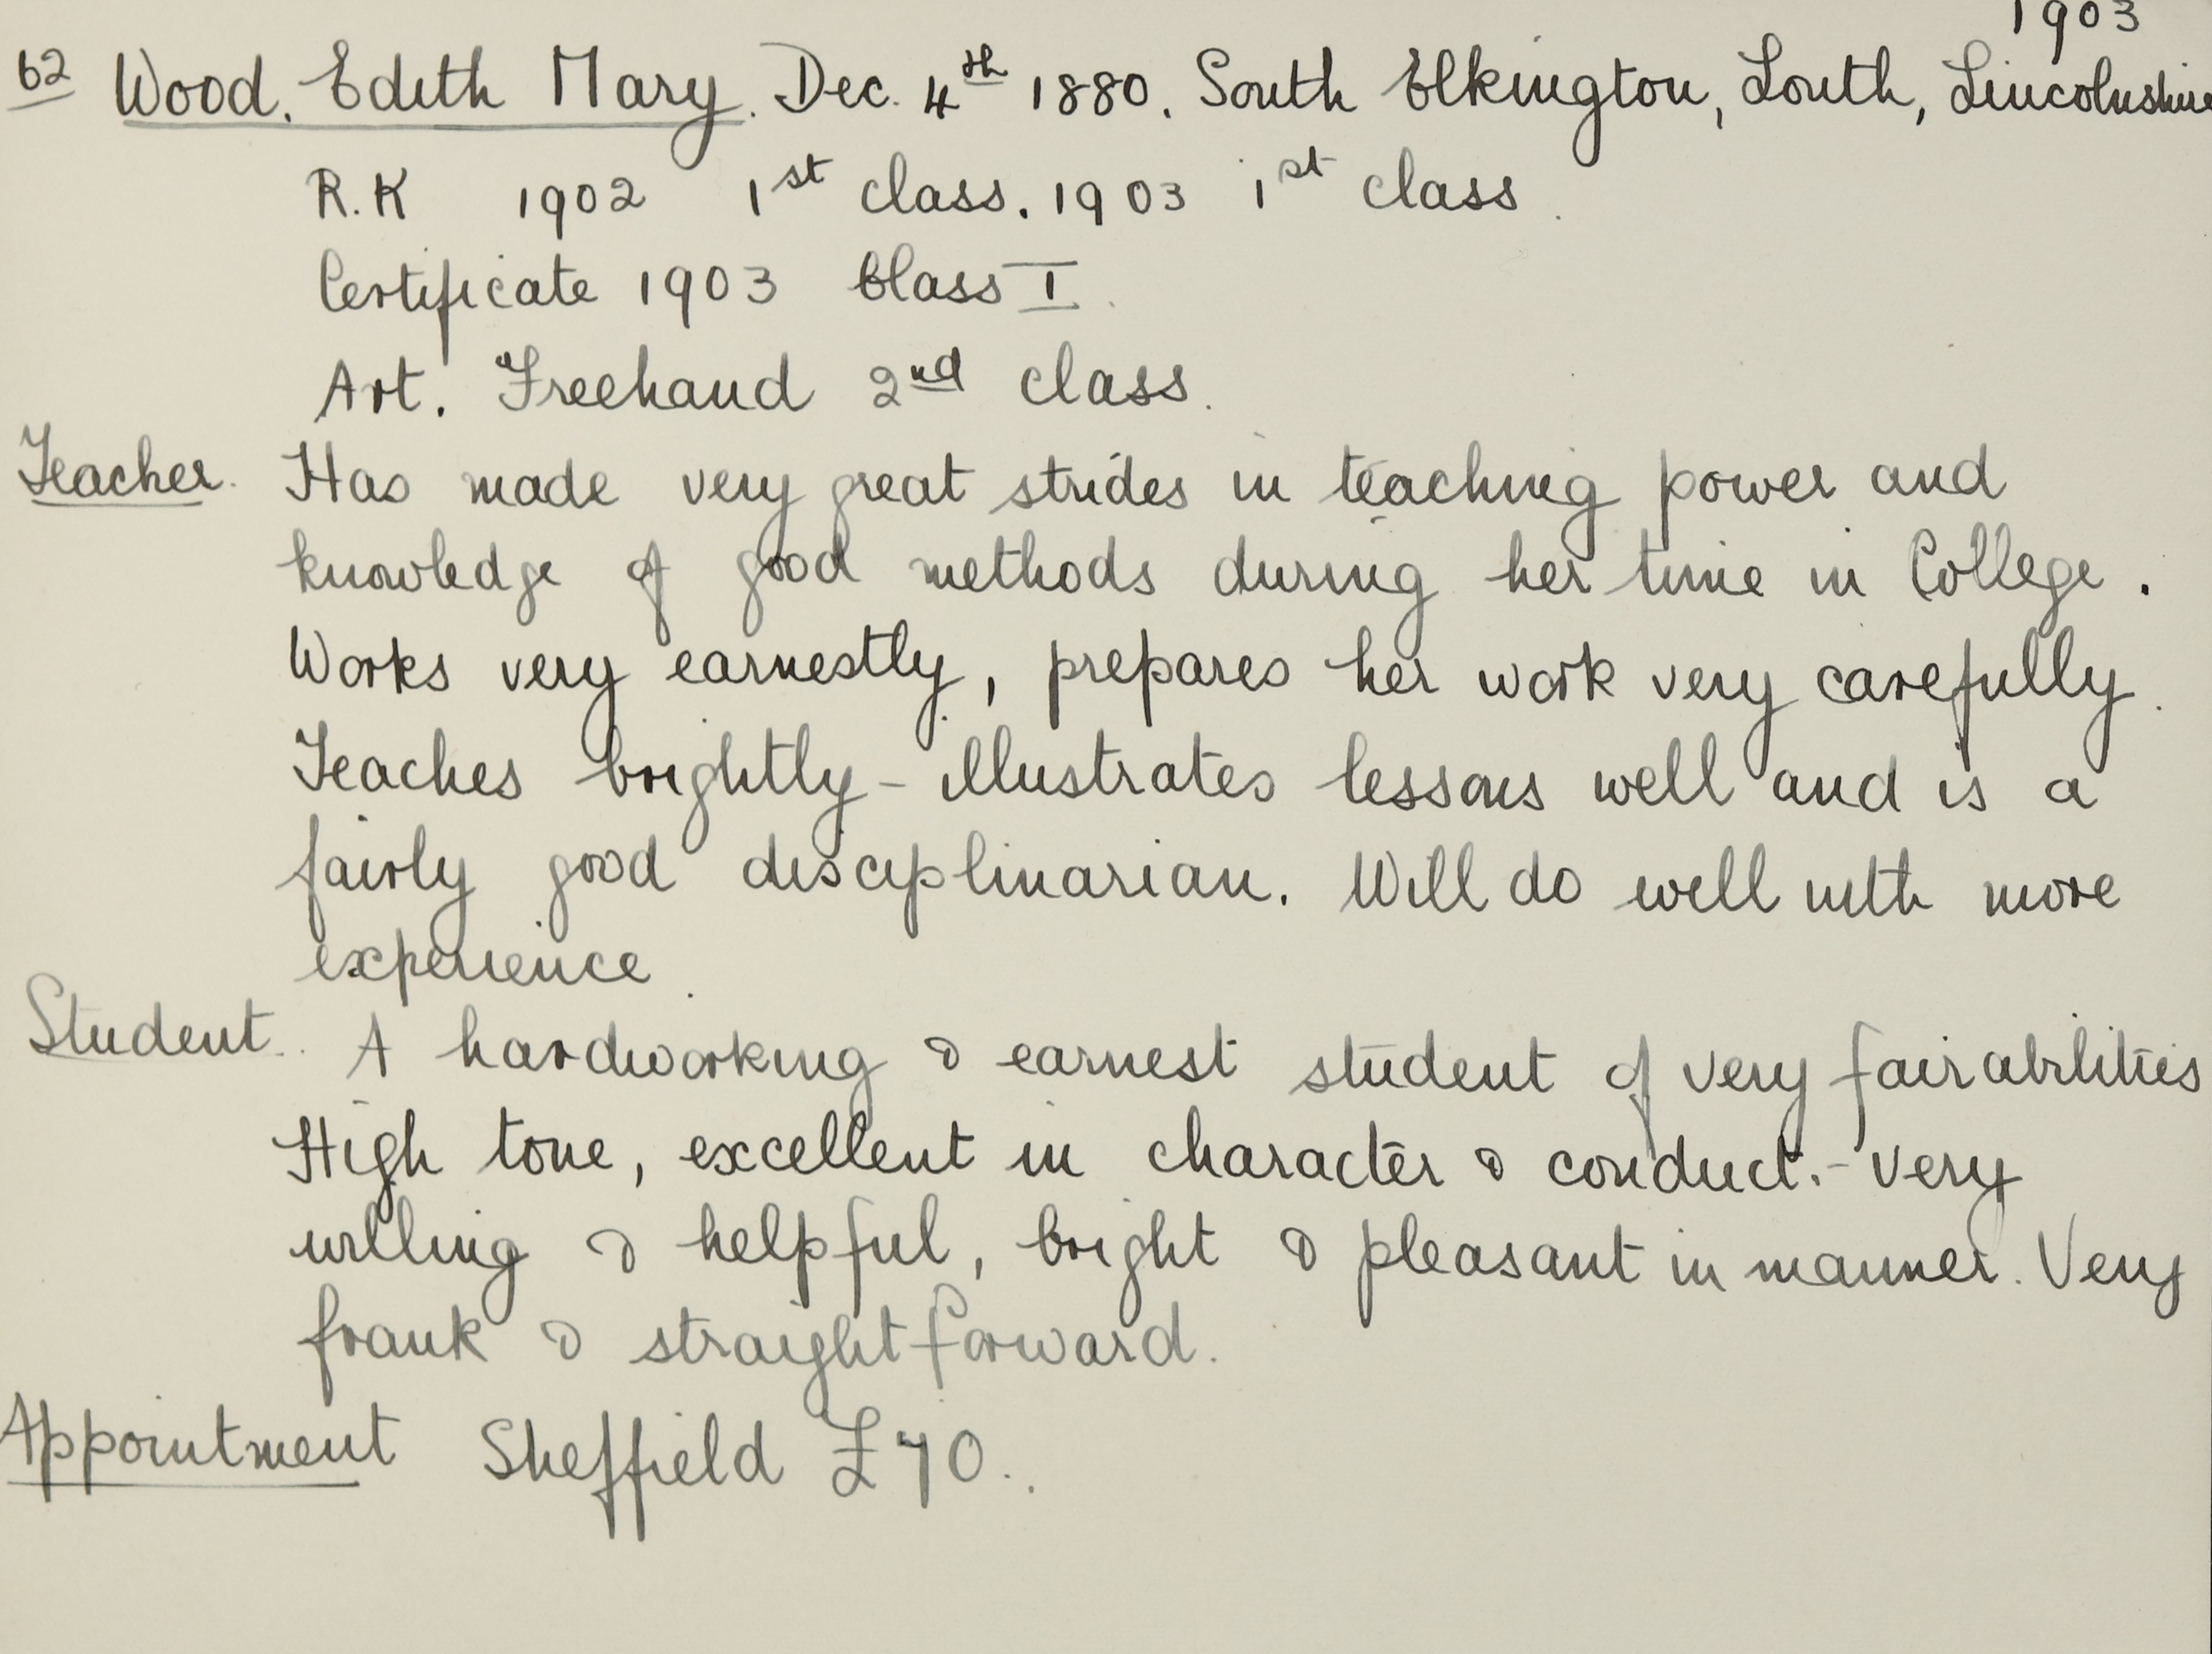 1903
62 Wood. Edith Mary. Dec. 4th 1880. South Elkington, Louth, Lincolnshire
R.K 1902 1st class. 1903 1st class.
Certificate 1903 Class I.
Art. Freehand 2nd class.
Teacher. Has made very great strides in teaching power and
knowledge of good methods during her time in College.
Works very earnestly, prepares her work very carefully.
Teaches brightly - illustrates lessons well and is a
fairly good disciplinarian. Will do well with more
experience.
Student. A hardworking & earnest student of very fair abilities
High tone, excellent in character & conduct. - very
willing & helpful, bright & pleasant in manner. Very
frank & straightforward.
Appointment Sheffield £70.